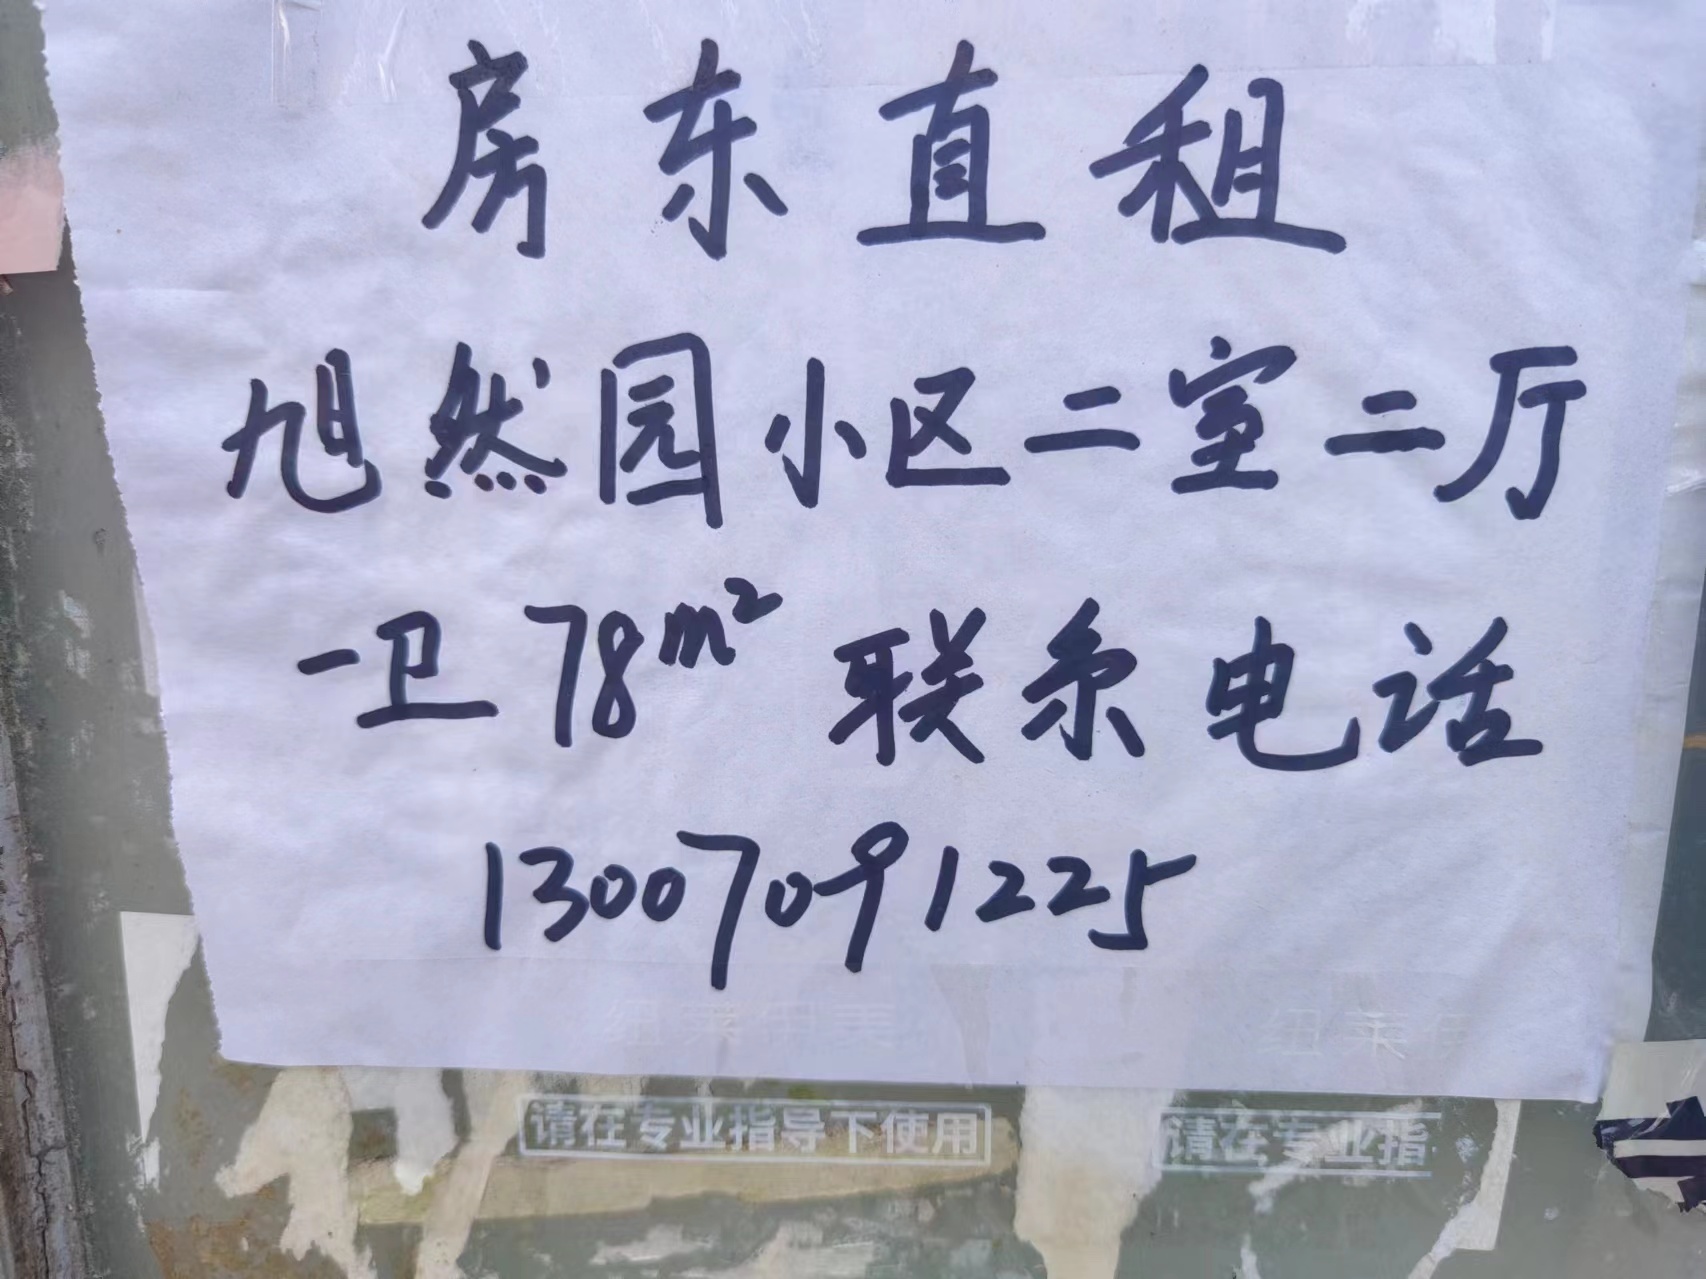 房东直租
旭然园小区二室二厅
一卫78m² 联系电话
13007091225
请在专业指导下使用
请在专业指